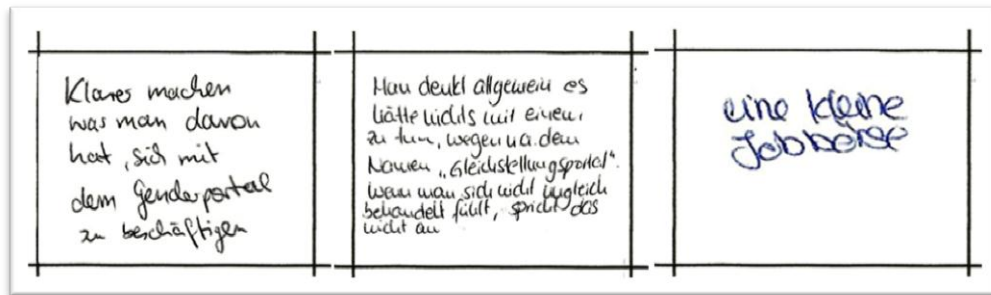 Klarer machen
was man davon
hat, sich mit
dem Genderportal
zu beschäftigen
Man denkt allgemein es
hätte nichts mit einem
zu tun, wegen u.a. dem
Namen „Gleichstellungsportal“.
wenn man sich nicht ungleich
behandelt fühlt, spricht das
nicht an
eine kleine
Jobbörse